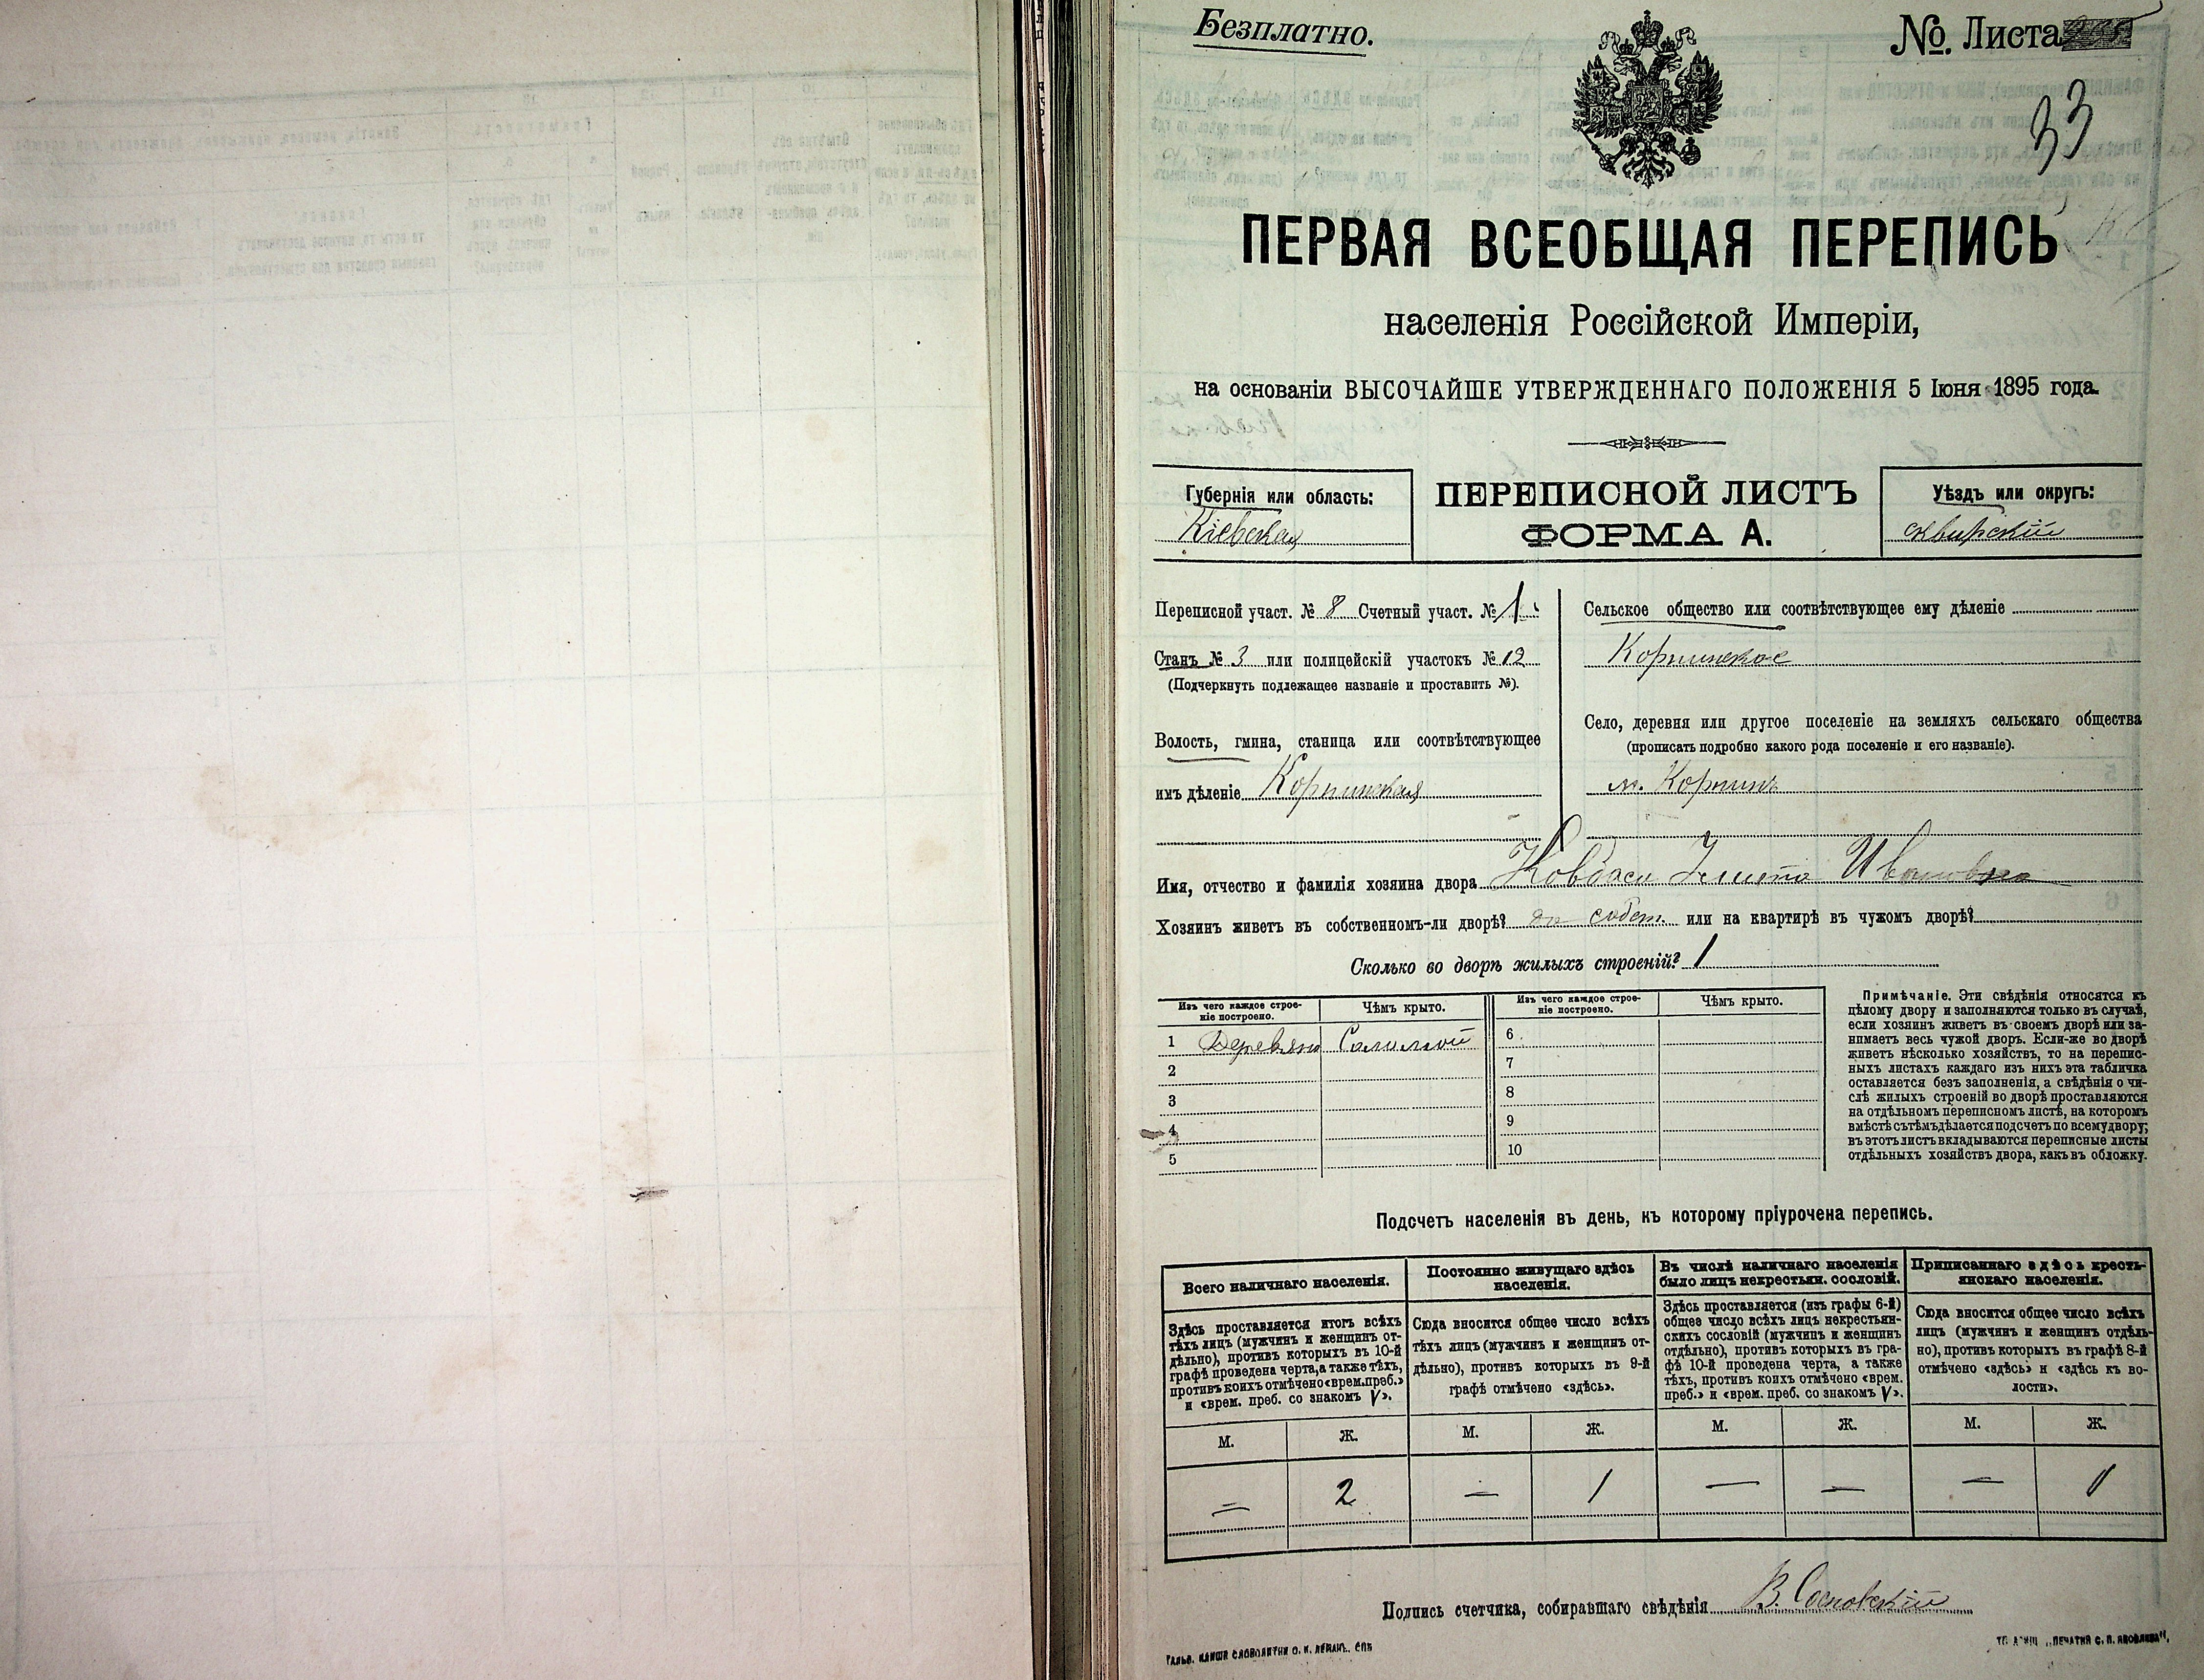 Безплатно.
№. Листа
33
ПЕРВАЯ ВСЕОБЩАЯ ПЕРЕПИСЬ
населенія Россійской Имперіи,
на основаніи ВЫСОЧАЙШЕ УТВЕРЖДЕННАГО ПОЛОЖЕНІЯ 5 Іюня 1895 года.
Губернія или область:
Кіевская
ПЕРЕПИСНОЙ ЛИСТЪ
ФОРМА А.
Уѣздъ или округъ:
сквирскій
Переписной участ. № 8 Счетный участ. № 1
Станъ № 3 или полицейскій участокъ № 12
(Подчеркнуть подлежащее названіе и проставить №).
Волость, гмина, станица или соотвѣтствующее
имъ дѣленіе Корнинская
Сельское общество или соотвѣтствующее ему дѣленіе
Корнинское
Село, деревня или другое поселеніе на земляхъ сельскаго общества
(прописать подробно какого рода поселеніе и его названіе).
м. Корнинъ
Имя, отчество и фамилія хозяина двора
Хозяинъ живетъ въ собственномъ-ли дворѣ? собст. или на квартирѣ въ чужомъ дворѣ?
Сколько во дворѣ жилыхъ строеній? 1
Изъ чего каждое строе-
ніе построено.
Чѣмъ крыто.
Изъ чего каждое строе-
ніе построено.
Чѣмъ крыто.
1 Деревяно Соломой 6
2 7
3 8
4 9
5 10
Примѣчаніе. Эти свѣдѣнія относятся къ
цѣлому двору и заполняются только въ случаѣ,
если хозяинъ живетъ въ своемъ дворѣ или за-
нимаетъ весь чужой дворъ. Если-же во дворѣ
живетъ нѣсколько хозяйствъ, то на перепис-
ныхъ листахъ каждаго изъ нихъ эта табличка
оставляется безъ заполненія, а свѣдѣнія о чи-
слѣ жилыхъ строеній во дворѣ проставляются
на отдѣльномъ переписномъ листѣ, на которомъ
вмѣстѣ съ тѣмъ дѣлается подсчетъ по всему двору;
въ этотъ листъ вкладываются переписные листы
отдѣльныхъ хозяйствъ двора, какъ въ обложку.
Подсчетъ населенія въ день, къ которому пріурочена перепись.
Всего наличнаго населенія.
Здѣсь проставляется итогъ всѣхъ
тѣхъ лицъ (мужчинъ и женщинъ от-
дѣльно), противъ которыхъ въ 10-й
графѣ проведена черта, а также тѣхъ,
противъ коихъ отмѣчено «врем. преб.»
и «врем. преб. со знакомъ V».
Постоянно живущаго здѣсь
населенія.
Сюда вносится общее число всѣхъ
тѣхъ лицъ (мужчинъ и женщинъ от-
дѣльно), противъ которыхъ въ 9-й
графѣ отмѣчено «здѣсь».
Въ числѣ наличнаго населенія
было лицъ некрестьян. сословій.
Здѣсь проставляется (изъ графы 6-й)
общее число всѣхъ лицъ некрестьян-
скихъ сословій (мужчинъ и женщинъ
отдѣльно), противъ которыхъ въ гра-
фѣ 10-й проведена черта, а также
тѣхъ, противъ коихъ отмѣчено «врем.
преб.» и «врем. преб. со знакомъ V».
Приписаннаго здѣсь кресть-
янскаго населенія.
Сюда вносится общее число всѣхъ
лицъ (мужчинъ и женщинъ отдѣль-
но), противъ которыхъ въ графѣ 8-й
отмѣчено «здѣсь» и «здѣсь къ во-
лости».
М. Ж. М. Ж. М. Ж. М. Ж.
— 2 — 1 — — — 1
Подпись счетчика, собиравшаго свѣдѣнія В. Сосновскій